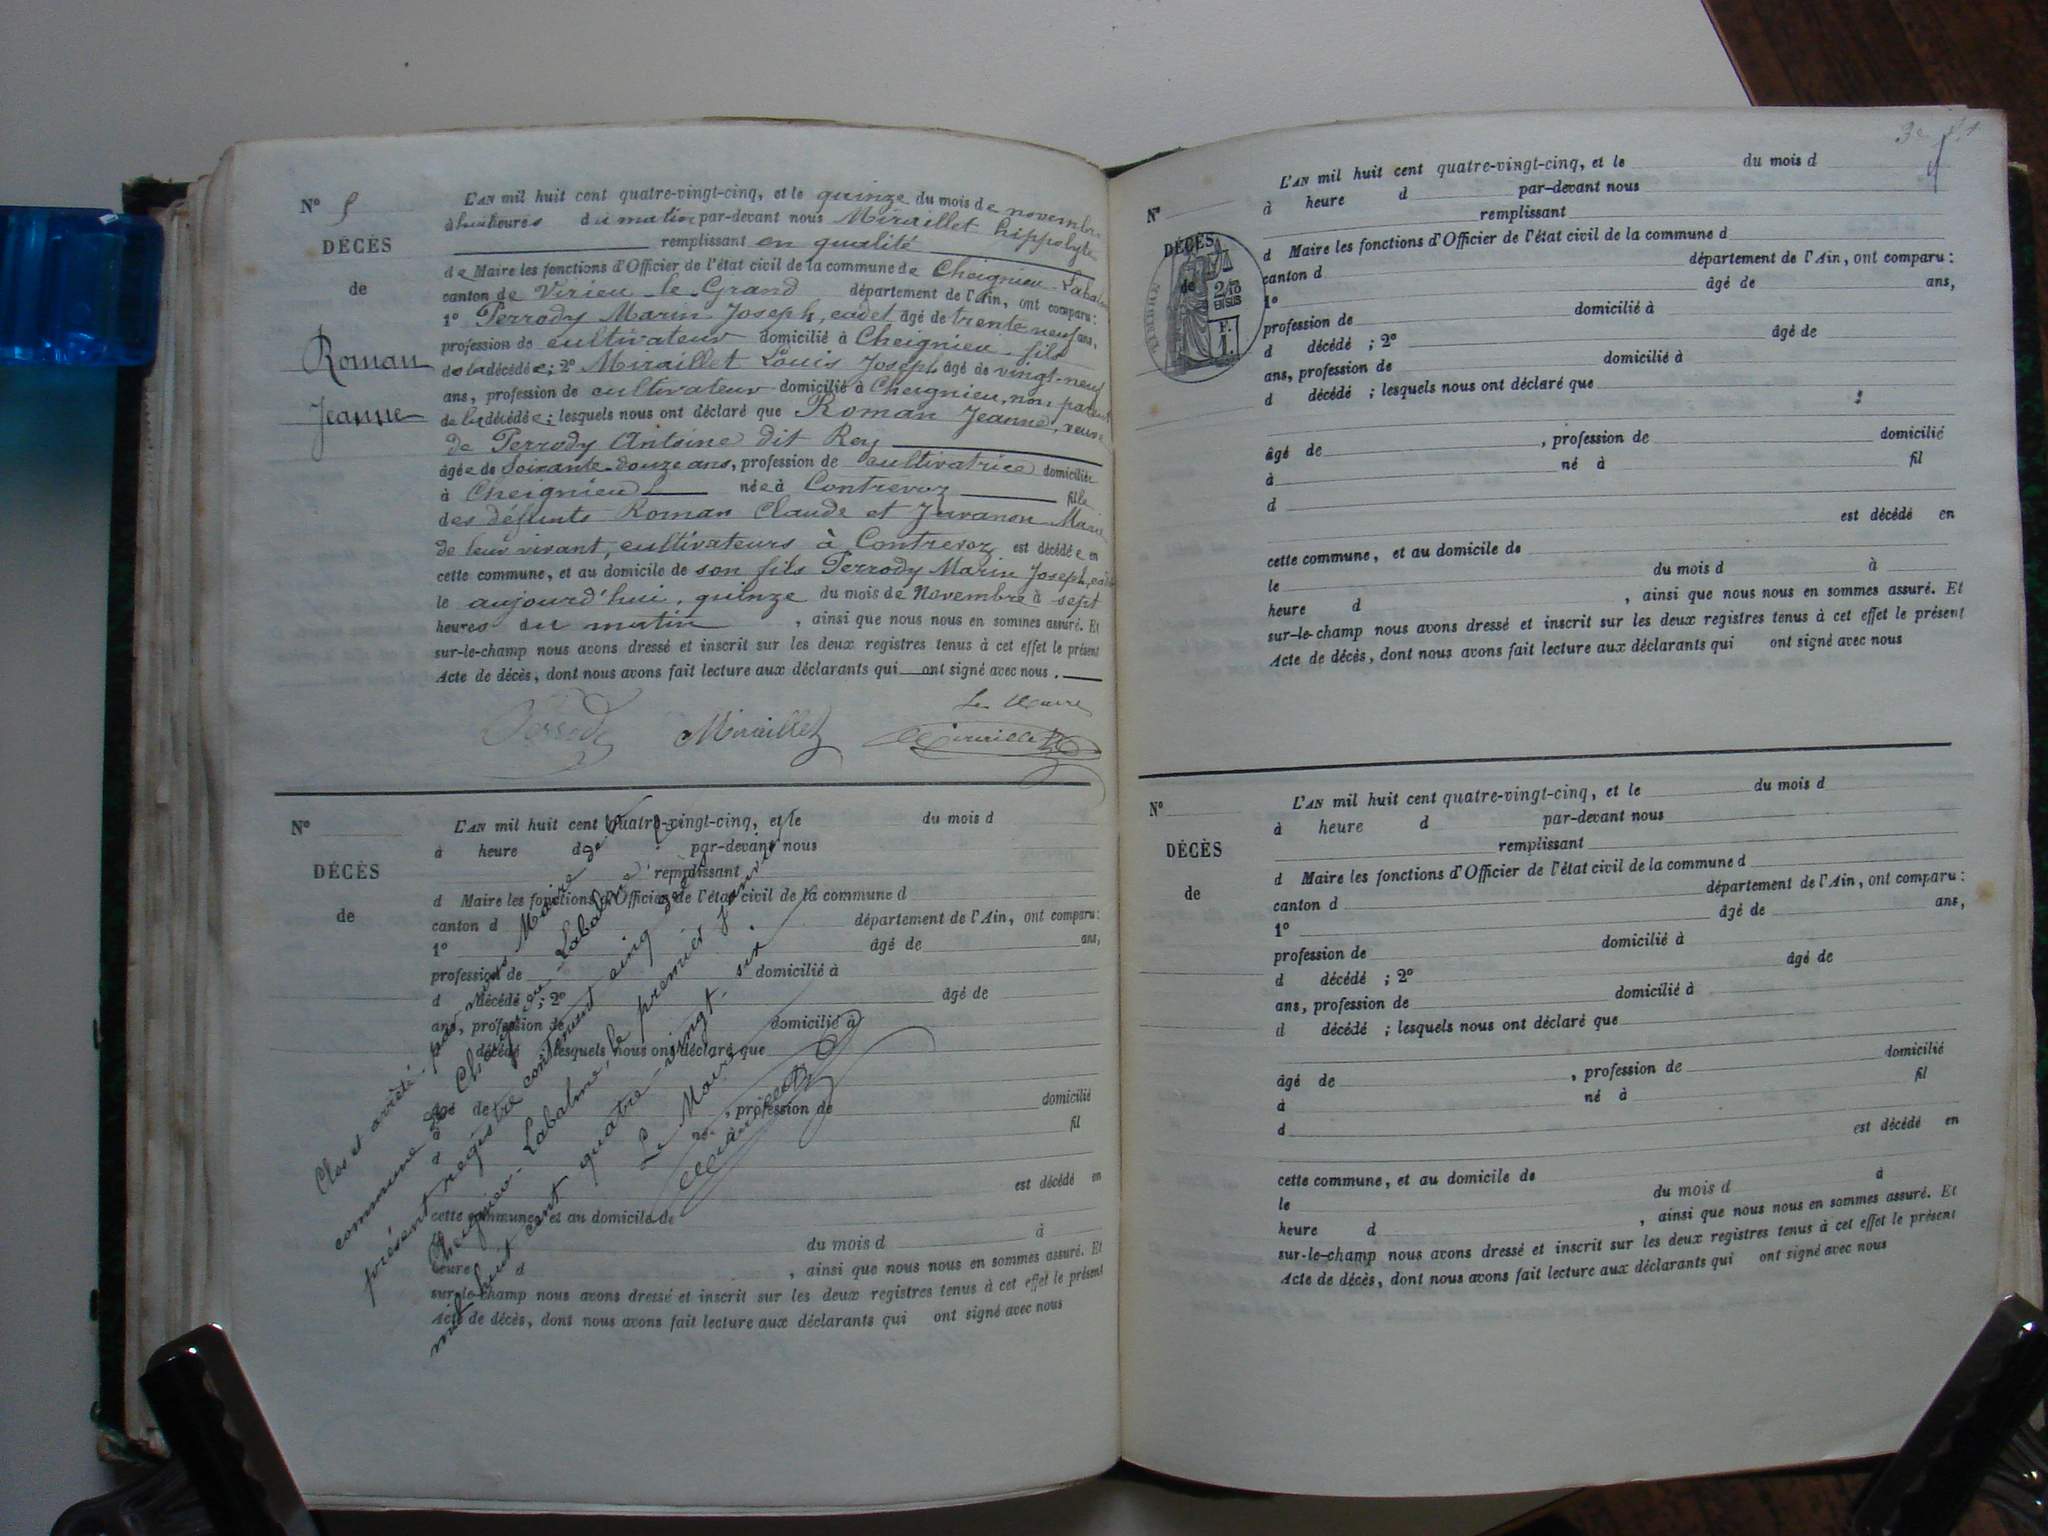 N° 5
DÉCÈS
de
Roman
Jeanne
L'AN mil huit cent quatre-vingt-cinq, et le quinze du mois de novembre
à huit heures du matin par-devant nous Miraillet hippolyte
remplissant en qualité
de Maire les fonctions d'Officier de l'état civil de la commune de Cheignieu-Labalme
canton de Virieu-le-Grand département de l'Ain, ont comparu :
1° Perrody Marin Joseph, cadet âgé de trente neuf ans,
profession de cultivateur domicilié à Cheignieu, fils
de la décédée ; 2° Miraillet Louis Joseph âgé de vingt-neuf
ans, profession de cultivateur domicilié à Cheignieu, non parent
de la décédée ; lesquels nous ont déclaré que Roman Jeanne, veuve
de Perrody Antoine dit Rey
âgée de soixante-douze ans, profession de cultivatrice domiciliée
à Cheignieu L née à Contrevoz fille
des défunts Roman Claude et Juvanon Marie
de leur vivant, cultivateurs à Contrevoz est décédée en
cette commune, et au domicile de son fils Perrody Marin Joseph, cadet
le aujourd'hui, quinze du mois de Novembre à sept
heures du matin , ainsi que nous nous en sommes assuré. Et
sur-le-champ nous avons dressé et inscrit sur les deux registres tenus à cet effet le présent
Acte de décès, dont nous avons fait lecture aux déclarants qui ont signé avec nous .
Le Maire
Perrody Miraillet Miraillet
N°
DÉCÈS
de
L'AN mil huit cent quatre-vingt-cinq, et le du mois d
à heure d par-devant nous
remplissant
d Maire les fonctions d'Officier de l'état civil de la commune d
canton d département de l'Ain, ont comparu :
1° âgé de ans,
profession de domicilié à
d décédé ; 2° âgé de
ans, profession de domicilié à
d décédé ; lesquels nous ont déclaré que
âgé de , profession de domicilié
à né à fil
d
est décédé en
cette commune, et au domicile de
le du mois d à
heure d , ainsi que nous nous en sommes assuré. Et
sur-le-champ nous avons dressé et inscrit sur les deux registres tenus à cet effet le présent
Acte de décès, dont nous avons fait lecture aux déclarants qui ont signé avec nous
Clos et arrêté par nous Maire de la
commune de Cheignieu-Labalme, le
présent registre contenant cinq
Cheignieu-Labalme, le premier janvier
mil huit cent quatre-vingt-six.
Le Maire
Miraillet
N°
DÉCÈS
de
TIMBRE
2/10
EN SUS
F.
1.
L'AN mil huit cent quatre-vingt-cinq, et le du mois d
à heure d par-devant nous
remplissant
d Maire les fonctions d'Officier de l'état civil de la commune d
canton d département de l'Ain, ont comparu :
1° âgé de ans,
profession de domicilié à
d décédé ; 2° âgé de
ans, profession de domicilié à
d décédé ; lesquels nous ont déclaré que
âgé de , profession de domicilié
à né à fil
d
est décédé en
cette commune, et au domicile de
le du mois d à
heure d , ainsi que nous nous en sommes assuré. Et
sur-le-champ nous avons dressé et inscrit sur les deux registres tenus à cet effet le présent
Acte de décès, dont nous avons fait lecture aux déclarants qui ont signé avec nous
N°
DÉCÈS
de
L'AN mil huit cent quatre-vingt-cinq, et le du mois d
à heure d par-devant nous
remplissant
d Maire les fonctions d'Officier de l'état civil de la commune d
canton d département de l'Ain, ont comparu :
1° âgé de ans,
profession de domicilié à
d décédé ; 2° âgé de
ans, profession de domicilié à
d décédé ; lesquels nous ont déclaré que
âgé de , profession de domicilié
à né à fil
d
est décédé en
cette commune, et au domicile de
le du mois d à
heure d , ainsi que nous nous en sommes assuré. Et
sur-le-champ nous avons dressé et inscrit sur les deux registres tenus à cet effet le présent
Acte de décès, dont nous avons fait lecture aux déclarants qui ont signé avec nous